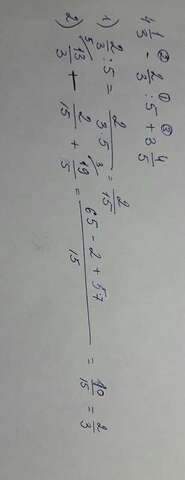 4 1/3 - 2/3 : 5 + 3 4/5
1) 2/3 : 5 = 2/(3·5) = 2/15
2) 13/3 - 2/15 + 19/5 = (65 - 2 + 57)/15 = 10/15 = 2/3